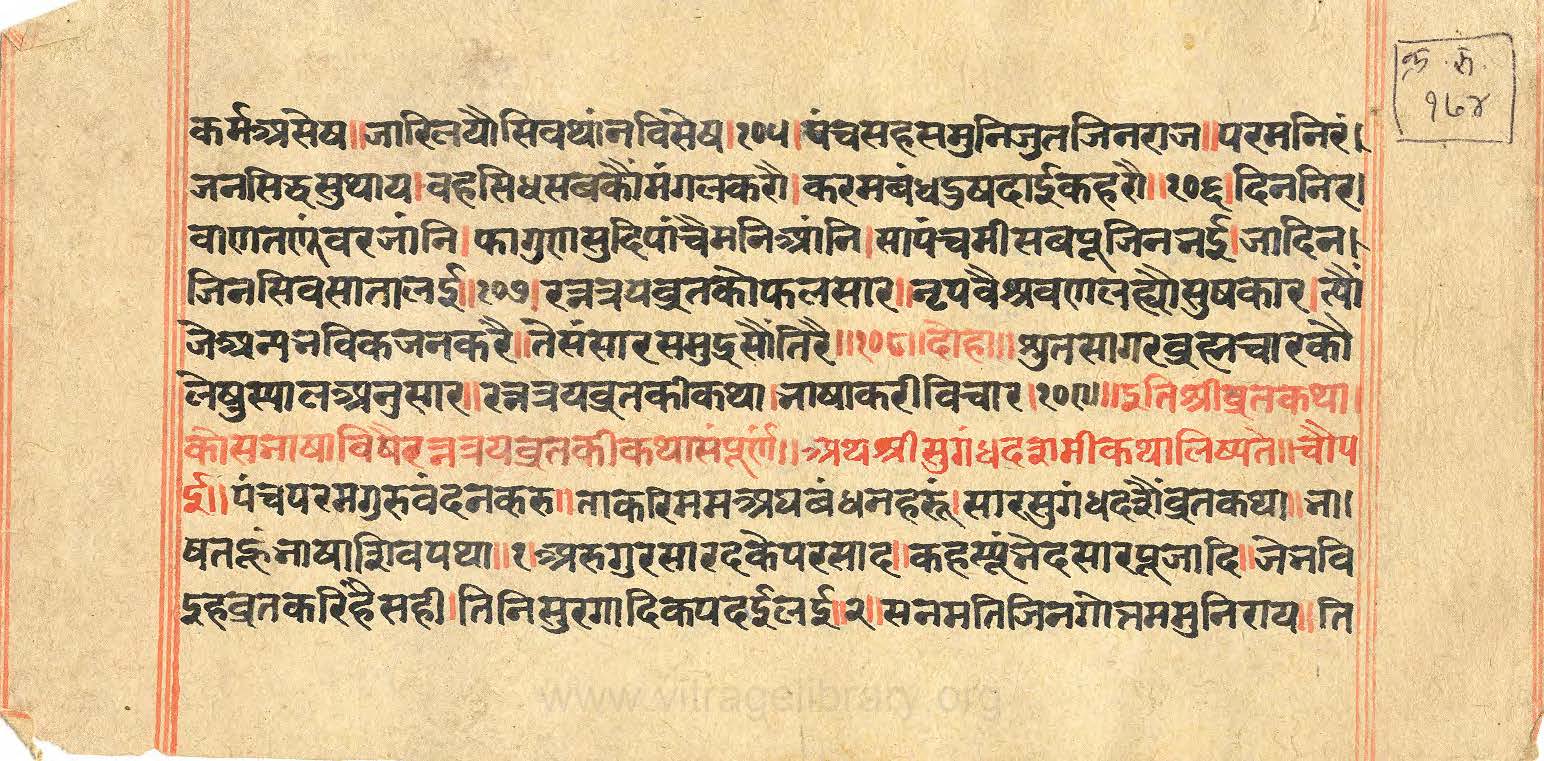 क्र. रु.
१७४
कर्मअसेष॥जारिलयौसिवथांनविसेष।१०५।पंचसहसमुनिजुतजिनराज॥परमनिरं।
जनसिद्धसुथाय।वहसिधसबकौंमंगलकरौ।करमबंधदुषदाईकहरौ॥१०६।दिननिर।
वाणतणूंवरजांनि।फागुणसुदिपांचैमनिआंनि।सापंचमीसबपूजिनभई।जादिन।
जिनसिवसातालई॥१०७।रत्नत्रयव्रतकौफलसार॥नृपवैश्रवणलह्यौसुषकार।त्यौं
जेअन्यभविकजनकरै॥तेसंसारसमुद्रसौंतिरै॥१०८॥दोहा॥श्रुतसागरब्रह्मचारकौ
लेषुस्यालअनुसार॥रत्नत्रयव्रतकीकथा।भाषाकरीविचार।१०९॥॥इतिश्रीव्रतकथा।
कौसभाषाविषैरत्नत्रयव्रतकीकथासंपूर्णं॥अथश्रीसुगंधदशमीकथालिष्यते॥चौप
ई॥पंचपरमगुरुवंदनकरु॥ताकरिममअघबंधनहरूं।सारसुगंधदशौंव्रतकथा॥भा।
षतहूंभाषाशिवपथा॥१।अरुगुरसारदकैपरसाद॥कहस्यूंभेदसारपूजादि॥जैनवि
इहव्रतकरिंहैसही।तिनिसुरगादिकपदईलई॥२॥सनमतिजिनगोत्तममुनिराय॥ति
www.vitragelibrary.org